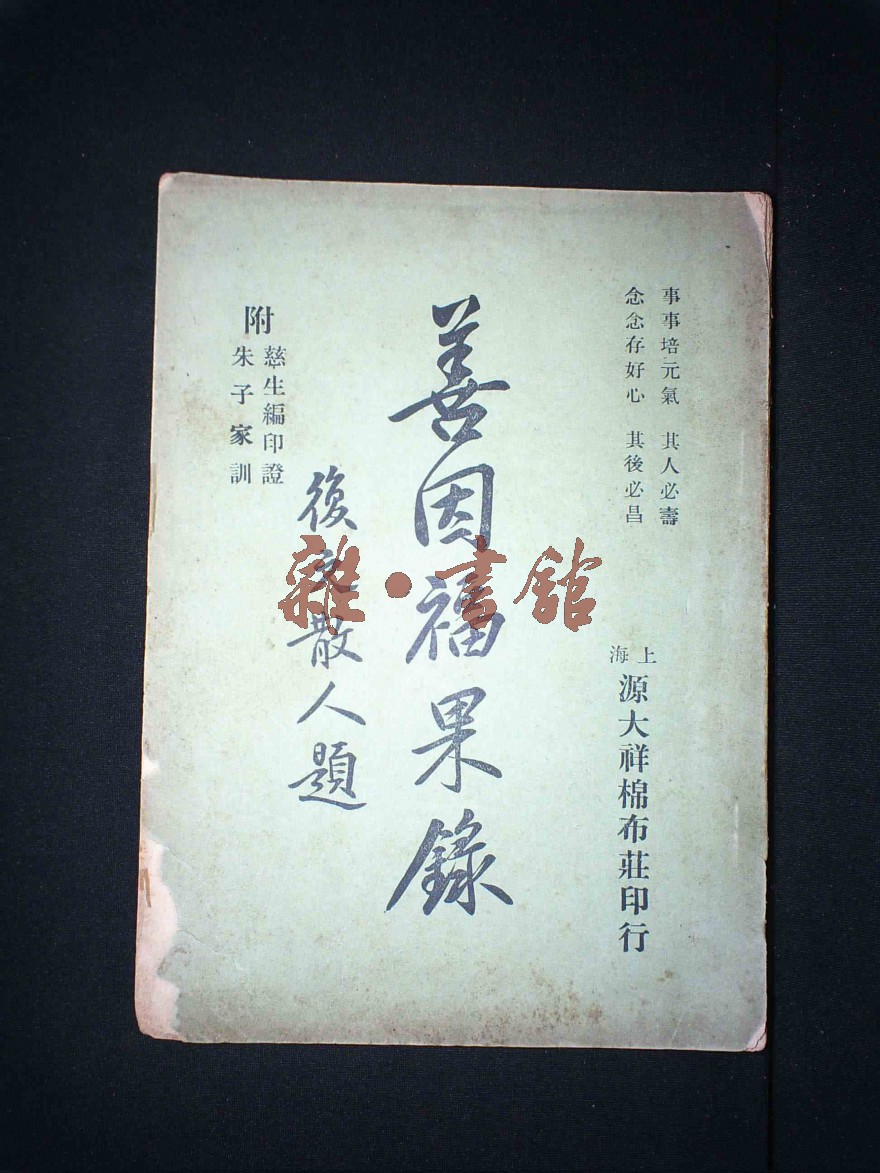 事事培元氣 其人必壽
念念存好心 其後必昌
上海
源大祥棉布莊印行
善因福果錄
復
散人題
附
慈生編印證
朱子家訓
雜·書館